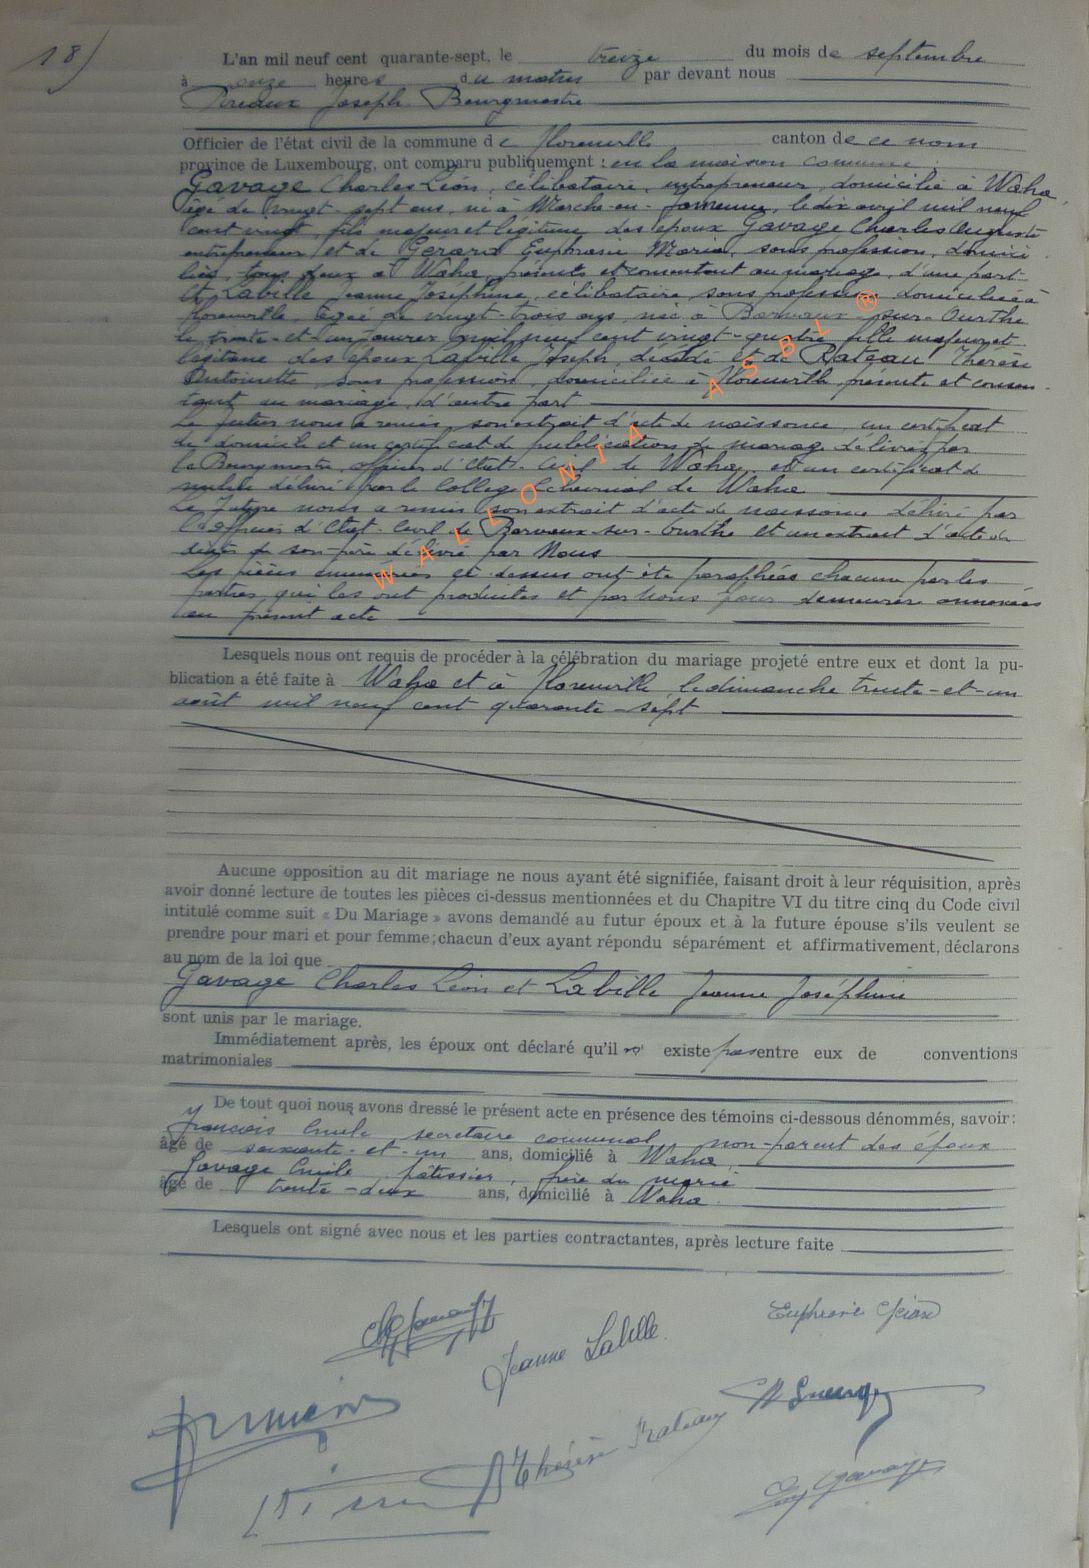 18)
L'an mil neuf cent quarante-sept, le treize du mois de septembre
à onze heures du matin par devant nous
Joseph Bourgmestre
Officier de l'état civil de la commune de Florenville canton de ce nom
province de Luxembourg, ont comparu publiquement : en la maison commune
Gavage Charles Léon, célibataire, entrepreneur, domicilié à Waha,
âgé de vingt-sept ans, né à Marche-en-Famenne, le dix avril mil neuf
cent vingt, fils majeur et légitime des époux Gavage Charles Auguste
entrepreneur et de Gérard Euphrasie Maria, sans profession, domici-
liés tous deux à Waha, présents et consentant au mariage, d'une part-
Et Labille Jeanne Joséphine, célibataire, sans profession domiciliée à
Florenville âgée de vingt-trois ans, née à Barvaux-sur-Ourthe
le trente-et-un janvier mil neuf cent vingt-quatre, fille majeure et
légitime des époux Labille Joseph, décédé et de Rateau Thérèse
Antoinette sans profession, domiciliée à Florenville, présente et consen-
tant au mariage, d'autre part
Le futur nous a remis, son extrait d'acte de naissance, un certificat
de domicile et un certificat de publication de mariage délivrés par
le Bourgmestre, officier d'Etat-Civil de Waha, et un certificat de
milice délivré par le Collège Echevinal de Waha
La future nous a remis son extrait d'acte de naissance délivré par
l'officier d'Etat-Civil de Barvaux-sur-Ourthe et un extrait d'acte de
décès de son père délivré par Nous
Les pièces énumérées ci-dessus ont été paraphées chacune par les
parties qui les ont produites et par Nous pour demeurer annexées
au présent acte
Lesquels nous ont requis de procéder à la célébration du mariage projeté entre eux et dont la pu-
blication a été faite à Waha et à Florenville, le dimanche trente-et-un
août mil neuf cent quarante-sept
Aucune opposition au dit mariage ne nous ayant été signifiée, faisant droit à leur réquisition, après
avoir donné lecture de toutes les pièces ci-dessus mentionnées et du Chapitre VI du titre cinq du Code civil
intitulé comme suit « Du Mariage » avons demandé au futur époux et à la future épouse s'ils veulent se
prendre pour mari et pour femme; chacun d'eux ayant répondu séparément et affirmativement, déclarons
au nom de la loi que
Gavage Charles Léon et Labille Jeanne Joséphine
sont unis par le mariage.
Immédiatement après, les époux ont déclaré qu'il n' existe pas entre eux de conventions
matrimoniales
De tout quoi nous avons dressé le présent acte en présence des témoins ci-dessous dénommés, savoir:
François Emile secrétaire communal, non-parent des époux
âgé de soixante-et-un ans, domicilié à Waha
Gavage Emile, pâtissier, frère du marié
âgé de trente-deux ans, domicilié à Waha
Lesquels ont signé avec nous et les parties contractantes, après lecture faite
Jeanne Labille
Thérèse Rateau
WALLONIA ASBL ®